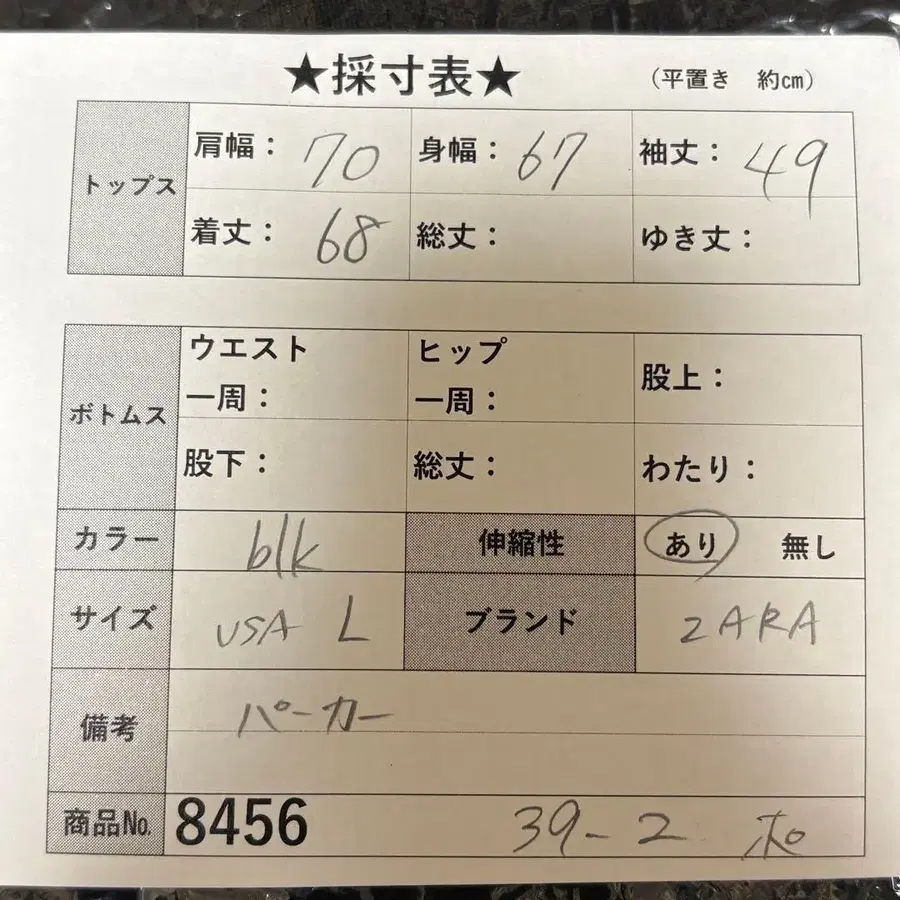 ★採寸表★ (平置き 約cm)
トップス 肩幅: 70 身幅: 67 袖丈: 49
着丈: 68 総丈: ゆき丈:
ボトムス ウエスト一周: ヒップ一周: 股上:
股下: 総丈: わたり:
カラー blk 伸縮性 あり 無し
サイズ USA L ブランド ZARA
備考 パーカー
商品No. 8456 39-2 ホ